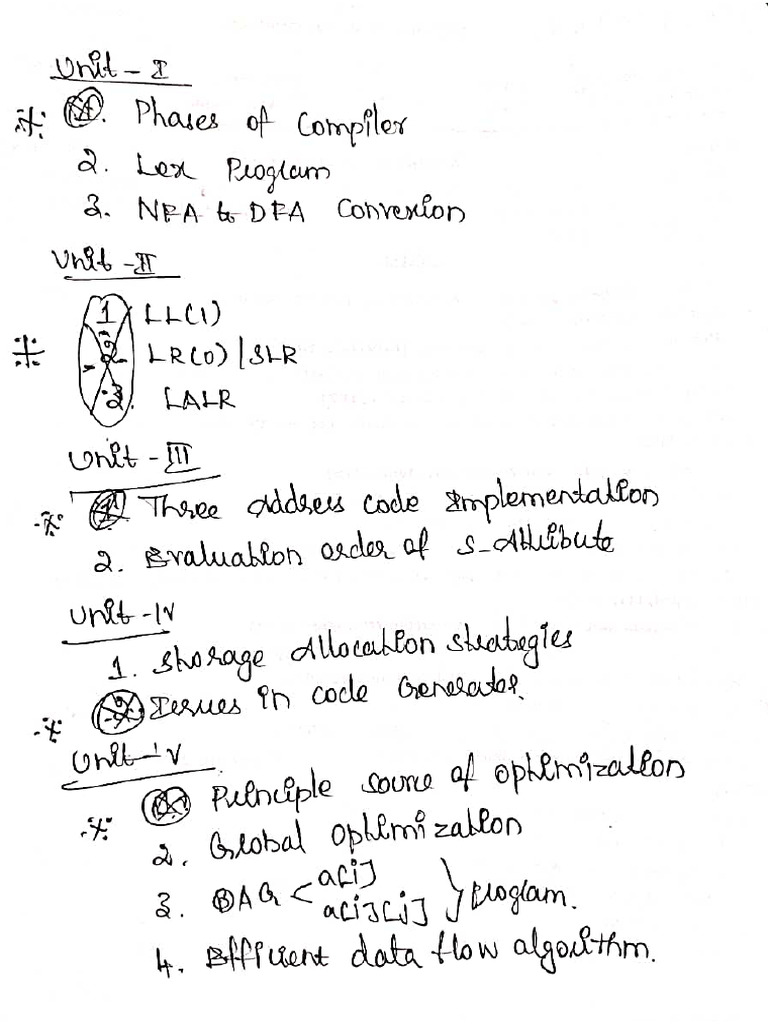 Unit - I
1. Phases of Compiler
2. Lex Program
3. NFA to DFA Conversion
Unit - II
1 LL(1)
2. LR(0) | SLR
3. LALR
Unit - III
1 Three address code Implementation
2. Evaluation order of S-Attribute
Unit - IV
1. Storage Allocation strategies
2 Issues in code Generator.
Unit - V
1 Principle source of optimization
2. Global optimization
3. DAG < a[i] a[i][j] } program.
4. Efficient data flow algorithm.